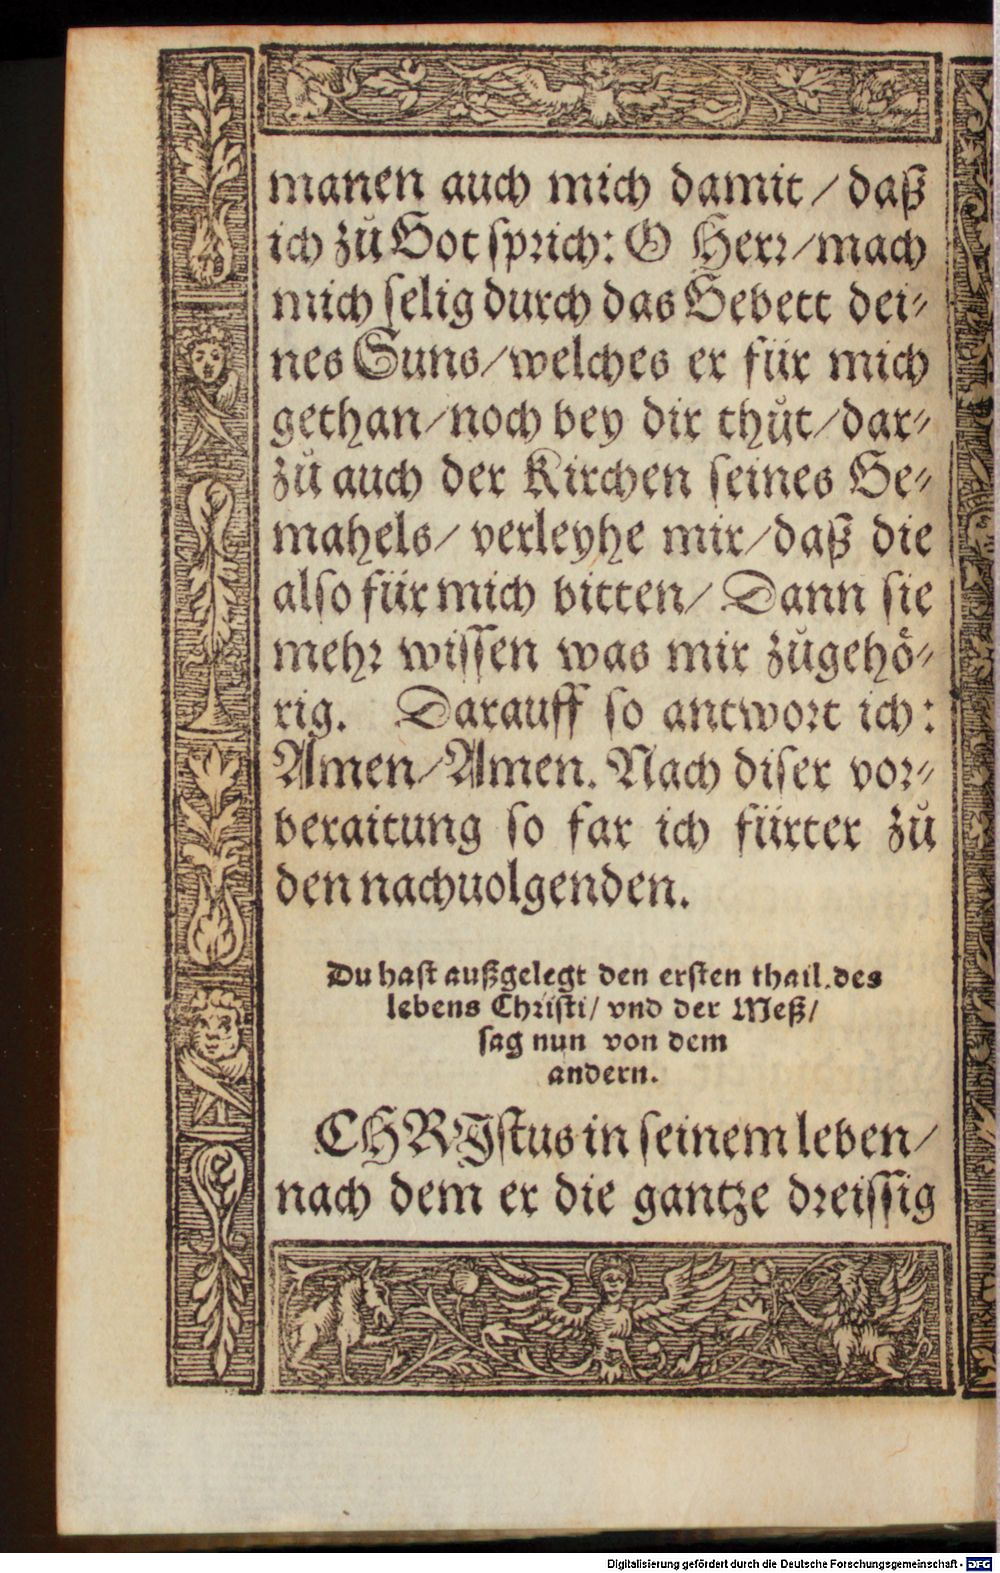 manen auch mich damit / daß
ich zuͦ Got sprich: O Herr / mach
mich selig durch das Gebett dei-
nes Suns / welches er für mich
gethan / noch bey dir thuͦt / dar-
zuͦ auch der Kirchen seines Ge-
mahels / verleyhe mir / daß die
also für mich bitten / Dann sie
mehr wissen was mir zuͦgehö-
rig. Darauff so antwort ich:
Amen / Amen. Nach diser vor-
beraitung so far ich fürter zuͦ
den nachuolgenden.
Du hast außgelegt den ersten thail des
lebens Christi / vnd der Meß /
sag nun von dem
andern.
CHRIstus in seinem leben /
nach dem er die gantze dreissig
Digitalisierung gefördert durch die Deutsche Forschungsgemeinschaft - DFG